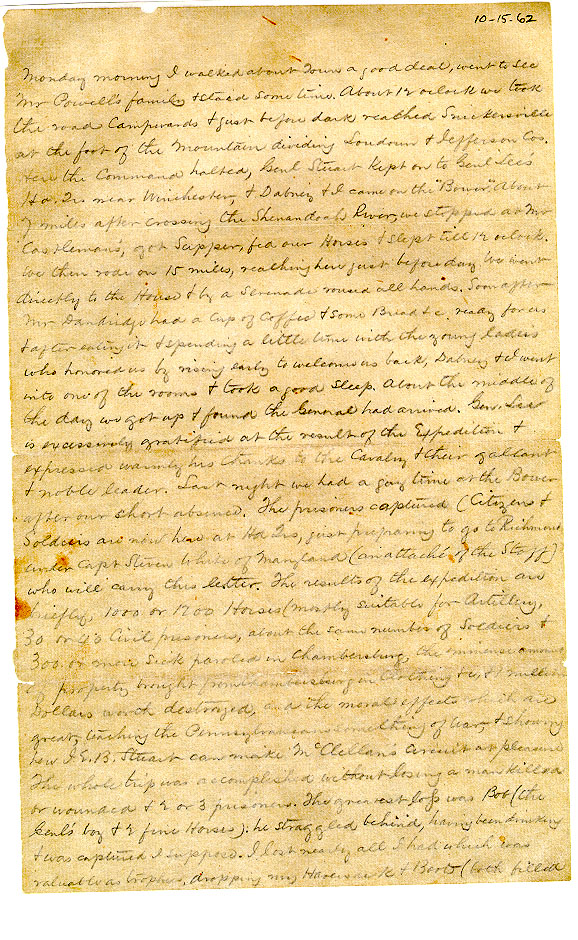 10-15-62
Monday morning I walked about Town a good deal, went to see
Mr Powell's family & staid some time. About 12 oclock we took
the road Campwards & just before dark reached Snickersville
at the foot of the Mountain dividing Loudoun & Jefferson Cos.
Here the Command halted, Genl Stuart kept on to Genl Lee's
Hd. Qr. near Winchester, & Dabney & I came on the "Bower". About
7 miles after crossing the Shenandoah River, we stopped at Mr
Castleman's, got Supper, fed our Horses & slept till 12 oclock.
We then rode on 15 miles, reaching here just before day. We went
directly to the House & by a Serenade roused all hands. Soon after
Mr Dandridge had a cup of Coffee & some Bread &c, ready for us
& after eating it & spending a little time with the young ladies
who honored us by rising early to welcome us back, Dabney & I went
into one of the rooms & took a good sleep. About the middle of
the day we got up & found the General had arrived. Gen. Lee
is excessively gratified at the result of the Expedition &
expressed warmly his thanks to the Cavalry & their gallant
& noble leader. Last night we had a gay time at the Bower
after our short absence. The prisoners captured (Citizens &
Soldiers are now here at Hd Qrs, just preparing to go to Richmond
under Capt Steven White of Maryland (an attaché of the Staff)
who will carry this letter. The results of the expedition are
briefly, 1000 or 1200 Horses (mostly suitable for Artillery,
30 or 40 Civil prisoners, about the same number of Soldiers &
300 or more Sick paroled in Chambersburg, the immense amount
of property brought from Chambersburg in Clothing &c, & 1 million
Dollars worth destroyed, and the moral effects which are
great, teaching the Pennsylvanians something of war, & showing
how J. E. B. Stuart can make McClellan's circuit at pleasure
The whole trip was accomplished without losing a man killed
or wounded & 2 or 3 prisoners. The greatest loss was Bob (the
Genl's boy & 2 fine Horses): he straggled behind, having been drinking
& was captured I suppose. I lost nearly all I had which was
valuable as trophies, dropping my Haversack & Boots (both filled